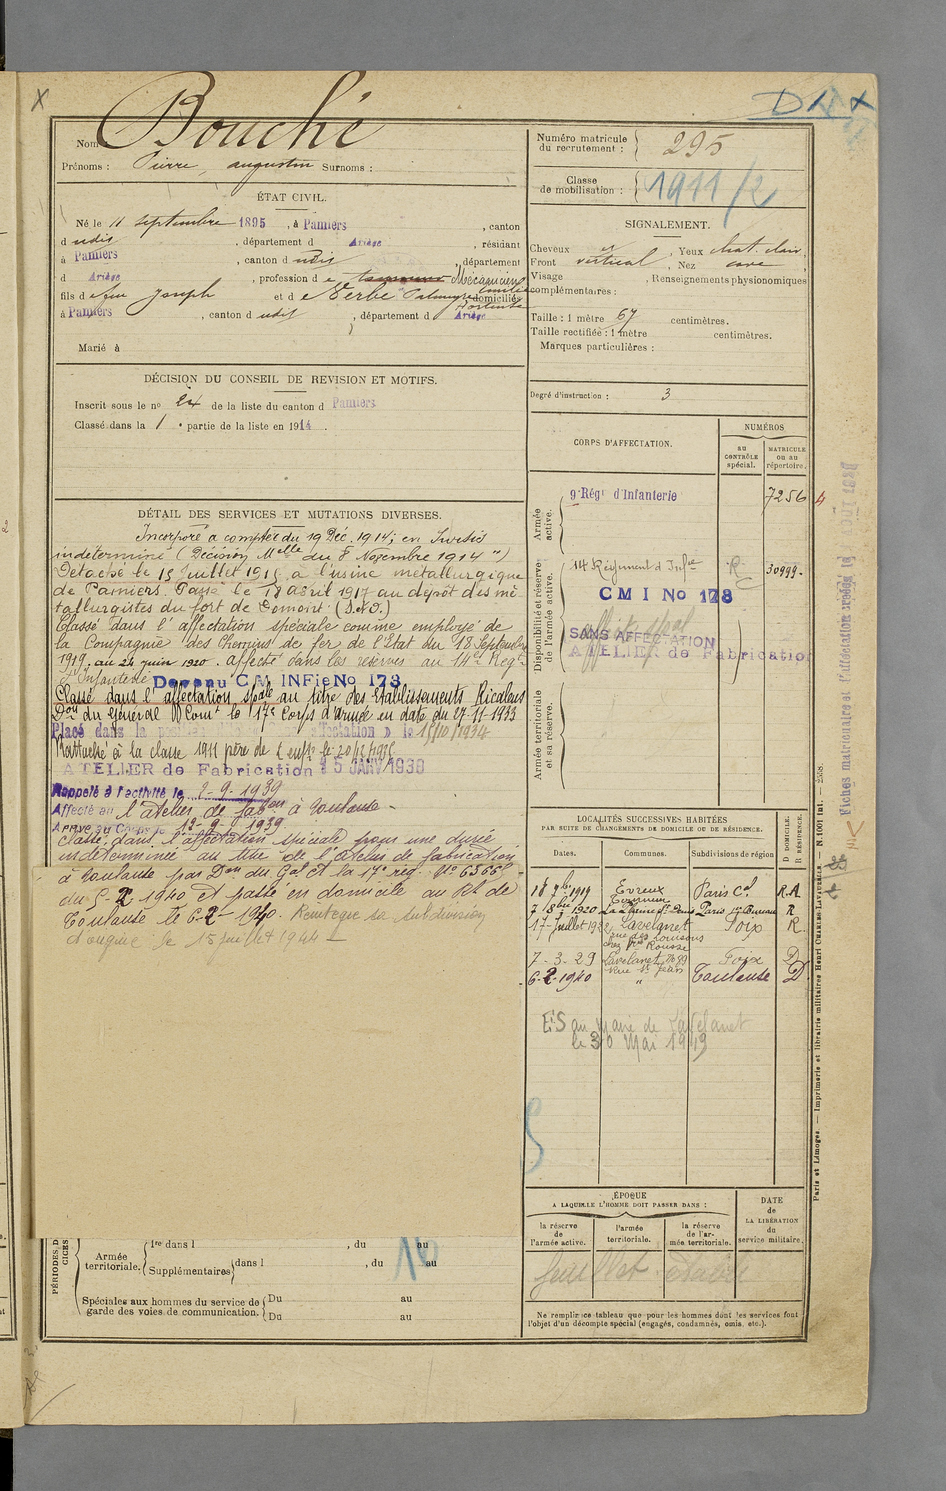 X
D
Nom Bouché
Prénoms : Pierre, augustin Surnoms :
ÉTAT CIVIL.
Né le 11 septembre 1895, à Pamiers, canton
d udis, département d Ariège, résidant
à Pamiers, canton d udis, département
d Ariège, profession de Mécanicien
fils de feu Joseph et de Verbe Palmyre domiciliés
à Pamiers, canton d udit, département d Ariège
Marié à
DÉCISION DU CONSEIL DE REVISION ET MOTIFS.
Inscrit sous le no 24 de la liste du canton d Pamiers
Classé dans la 1e partie de la liste en 1914.
DÉTAIL DES SERVICES ET MUTATIONS DIVERSES.
Incorporé a compter du 19 Déc. 1914; en Sursis
indéterminé (Décision Mlle du 8 Novembre 1914")
Détaché le 15 Juillet 1915 à l'usine métallurgique
de Pamiers. Passé le 18 avril 1917 au dépôt des mé-
tallurgistes du fort de Domont. (S.&O.)
Classé dans l'affectation spéciale comme employé de
la Compagnie des Chemins de fer de l'Etat du 18 Septembre
1919, au 24 juin 1920. affecté dans les réserves au 14e Regt
d'Infanterie Devenu C M INFie No 173.
Classé dans l'affectation spale au titre des Etablissements Ricalens
Don du Général Ct Comt le 17e Corps d'Armée en date du 27-11-1933
Placé dans la position affectation D le 15/10/1934
Rattaché à la classe 1911 père de 2 enfts le 20/12/1935
ATELIER de Fabrication 15 JANV 1938
Rappelé à l'activité le 2-9-1939
Affecté au l'atelier de fabon à Toulouse -
Arrivé au Corps le 12-9-1939
Classé dans l'affectation spéciale pour une durée
indéterminée au titre de l'Atelier de fabrication
à Toulouse par Don du Gal Ct la 17e rég. No 6366S
du 5-2 1940 et passé en domicile au Rt de
Toulouse le 6-2-1940. Réintègre sa subdivision
d'origine le 15 juillet 1944 -
PÉRIODES D
CICES
Armée territoriale. 1re dans l , du au
Supplémentaires dans l , du au
16
Spéciales aux hommes du service de garde des voies de communication. Du au
Du au
Numéro matricule du recrutement : 295
Classe de mobilisation : 1911/2
SIGNALEMENT.
Cheveux , Yeux chat. clair
Front vertical, Nez cave
Visage , Renseignements physionomiques
complémentaires :
Taille : 1 mètre 67 centimètres.
Taille rectifiée : 1 mètre centimètres.
Marques particulières :
Degré d'instruction : 3
CORPS D'AFFECTATION.
NUMÉROS
AU CONTRÔLE spécial.
MATRICULE ou au répertoire.
Armée active.
9e Régt d'Infanterie 7256
Disponibilité et réserve de l'armée active.
14 Régiment d'Infie 30999
C M I No 173
SANS AFFECTATION
ATELIER de Fabrication
Armée territoriale et sa réserve.
LOCALITÉS SUCCESSIVES HABITÉES
PAR SUITE DE CHANGEMENTS DE DOMICILE OU DE RÉSIDENCE.
Dates. Communes. Subdivisions de région
D DOMICILE. R RÉSIDENCE.
18 7bre 1919 Evreux Paris Cal R.A
7 1920 La Plaine St Denis Paris 1er Bureau R
17-Juillet 1922 Lavelanet Foix R
7-3-29 Lavelanet Foix D
Rue St Jean
6-2-1940 " Toulouse D
Lavelanet
le 30 Mai 1949
ÉPOQUE
A LAQUELLE L'HOMME DOIT PASSER DANS :
la réserve de l'armée active.
l'armée territoriale.
la réserve de l'armée territoriale.
DATE de LA LIBÉRATION du service militaire.
Ne remplir ce tableau que pour les hommes dont les services font
l'objet d'un décompte spécial (engagés, condamnés, omis, etc.).
Paris et Limoges. — Imprimerie et librairie militaires Henri CHARLES-LAVAUZELLE. — N. 1001 int. — 2558.
Fiches matriculaire et d'affectation